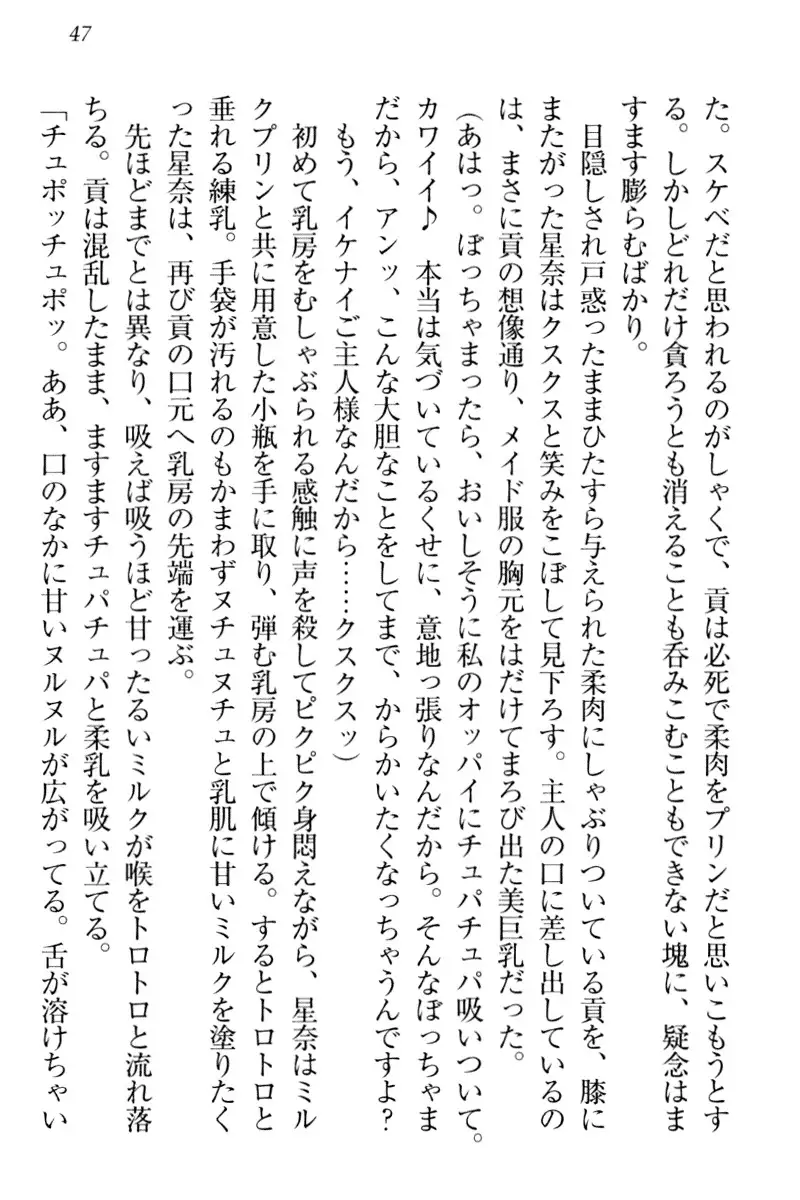 47
た。スケベだと思われるのがしゃくで、貢は必死で柔肉をプリンだと思いこもうとす
る。しかしどれだけ貪ろうとも消えることも呑みこむこともできない塊に、疑念はま
すます膨らむばかり。
目隠しされ戸惑ったままひたすら与えられた柔肉にしゃぶりついている貢を、膝に
またがった星奈はクスクスと笑みをこぼして見下ろす。主人の口に差し出しているの
は、まさに貢の想像通り、メイド服の胸元をはだけてまろび出た美巨乳だった。
(あはっ。ぼっちゃまったら、おいしそうに私のオッパイにチュパチュパ吸いついて。
カワイイ♪　本当は気づいているくせに、意地っ張りなんだから。そんなぼっちゃま
だから、アンッ、こんな大胆なことをしてまで、からかいたくなっちゃうんですよ?
もう、イケナイご主人様なんだから……クスクスッ)
初めて乳房をむしゃぶられる感触に声を殺してピクピク身悶えながら、星奈はミル
クプリンと共に用意した小瓶を手に取り、弾む乳房の上で傾ける。するとトロトロと
垂れる練乳。手袋が汚れるのもかまわずヌチュヌチュと乳肌に甘いミルクを塗りたく
った星奈は、再び貢の口元へ乳房の先端を運ぶ。
先ほどまでとは異なり、吸えば吸うほど甘ったるいミルクが喉をトロトロと流れ落
ちる。貢は混乱したまま、ますますチュパチュパと柔乳を吸い立てる。
「チュポッチュポッ。ああ、口のなかに甘いヌルヌルが広がってる。舌が溶けちゃい